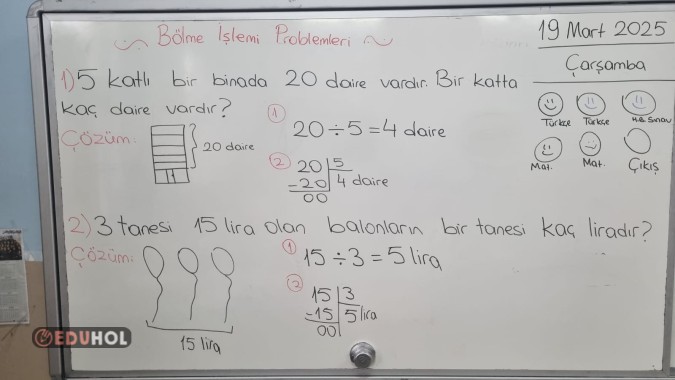 Bölme İşlemi Problemleri
19 Mart 2025
Çarşamba
Türkçe Türkçe H.B. Sınav
Mat. Mat. Çıkış
1) 5 katlı bir binada 20 daire vardır. Bir katta
kaç daire vardır?
Çözüm:
20 daire
1
20 ÷ 5 = 4 daire
2
20 5
-20 4 daire
00
2) 3 tanesi 15 lira olan balonların bir tanesi kaç liradır?
Çözüm:
15 lira
1
15 ÷ 3 = 5 lira
2
15 3
-15 5 lira
00
EDUHOL